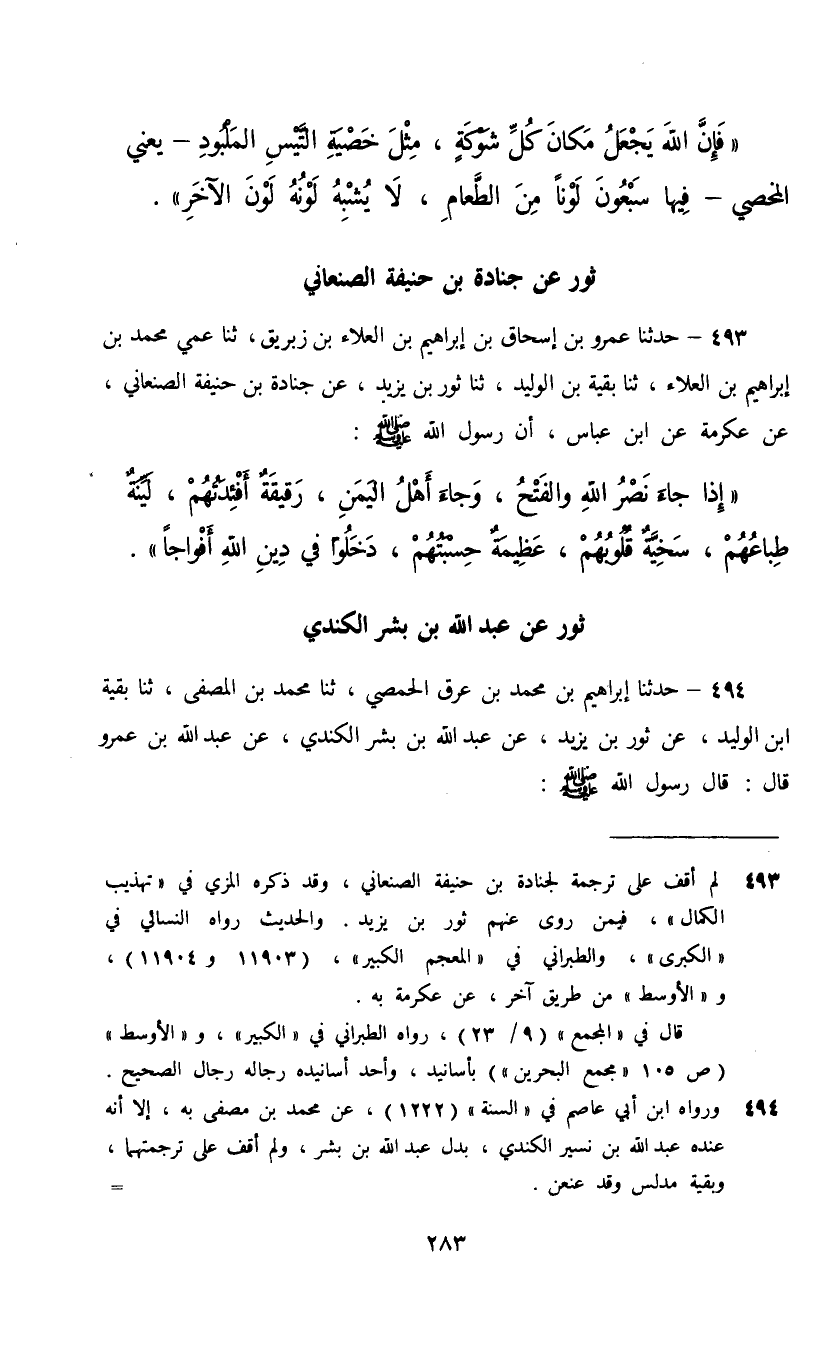 « فَإِنَّ اللّهَ يَجْعَلُ مَكانَ كُلِّ شَوْكَةٍ ، مِثْلَ خَصْيَةِ التَّيْسِ المَلْبُودِ – يعني
المخصي – فِيها سَبْعُونَ لَوْناً مِنَ الطَّعامِ ، لَا يُشْبِهُ لَوْنُهُ لَوْنَ الآخَرِ» .
ثور عن جنادة بن حنيفة الصنعاني
٤٩٣ – حدثنا عمرو بن إسحاق بن إبراهيم بن العلاء بن زبريق، ثنا عمي محمد بن
إبراهيم بن العلاء ، ثنا بقية بن الوليد ، ثنا ثور بن يزيد ، عن جنادة بن حنيفة الصنعاني ،
عن عكرمة عن ابن عباس ، أن رسول الله ﷺ :
« إِذا جاءَ نَصْرُ اللّهِ والفَتْحُ ، وَجاءَ أَهْلُ اليَمَنِ ، رَقيقَةٌ أَفْئِدَتُهُمْ ، لَيِّنَةٌ
طِباعُهُمْ ، سَخِيَّةٌ قُلُوبُهُمْ ، عَظِيمَةٌ حِسْبَتُهُمْ ، دَخَلُوا في دِينِ اللّهِ أَفْواجاً» .
ثور عن عبد الله بن بشر الكندي
٤٩٤ – حدثنا إبراهيم بن محمد بن عرق الحمصي ، ثنا محمد بن المصفى ، ثنا بقية
ابن الوليد ، عن ثور بن يزيد ، عن عبد الله بن بشر الكندي ، عن عبد الله بن عمرو
قال : قال رسول الله ﷺ :
٤٩٣ لم أقف على ترجمة لجنادة بن حنيفة الصنعاني ، وقد ذكره المزي في « تهذيب
الكمال» ، فيمن روى عنهم ثور بن يزيد . والحديث رواه النسائي في
«الكبرى» ، والطبراني في «المعجم الكبير» ، (١١٩٠٣ و ١١٩٠٤) ،
و «الأوسط» من طريق آخر ، عن عكرمة به .
قال في «المجمع» (٩/ ٢٣) ، رواه الطبراني في «الكبير» ، و «الأوسط»
(ص ١٠٥ «مجمع البحرين») بأسانيد ، وأحد أسانيده رجاله رجال الصحيح .
٤٩٤ ورواه ابن أبي عاصم في «السنة» (١٢٢٢) ، عن محمد بن مصفى به ، إلا أنه
عنده عبد الله بن نسير الكندي ، بدل عبد الله بن بشر ، ولم أقف على ترجمتهما ،
وبقية مدلس وقد عنعن . =
٢٨٣